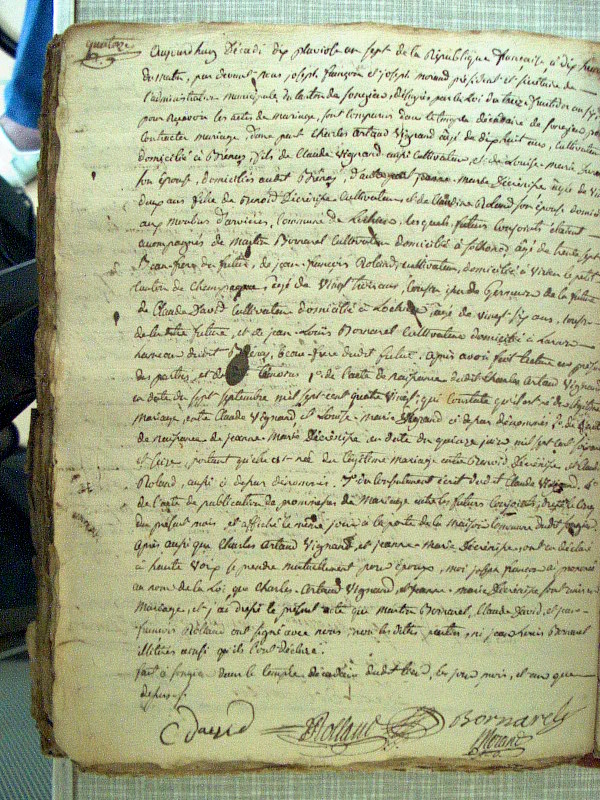 quatorze
Aujourdhuy Décadi dix pluviose an sept de la République française, à dix heures
du matin, par devant nous joseph françois et joseph morand président et secretaire de
l'administration municipale du canton de songieu, désignés par la Loi du treize fructidor an six
pour recevoir les actes de mariage, sont comparus dans le temple décadaire de songieu pour
contracter mariage, d'une part Charles Artaud Vignand agé de dixhuit ans, Cultivateur
domicilié à Brénaz, fils de Claude Vignand aussi Cultivateur et de Louise-Marie
son épouse, domiciliés audit Brénaz, d'autre part jeanne-Marie Décrérisse agée de vingt
deux ans fille de Benoid Décrérisse Cultivateur et de Claudine Roland son épouse domiciliés
aux moulins d'arvières, Commune de Lochieu, lesquels futurs conjoints étaient
accompagnés de Martin Bornarel Cultivateur domicilié à sothonod, agé de trente sept
Beau-frère du futur, de jean-françois Roland, cultivateur, domicilié à Virieu le petit
canton de Champagne, agé de Vingt trois ans, Cousin issu de Germain de la future
de Claude David Cultivateur domicilié à Lochieu agé de vingt-six ans, cousin
de laditte future, et de jean-Louis Bornarel Cultivateur domicilié à
hameau dudit Brénaz, beau-frère dudit futur. Après avoir fait lecture en présence
des parties et des témoins 1° de l'acte de naissance dudit Charles Artaud Vignand
en date du sept septembre mil sept cent quatre vingt, qui constate qu'il est né du légitime
mariage, entre Claude Vignand et Louise-marie ci-dessus dénommés, 2° de l'acte
de naissance de jeanne-Marie Décrérisse en date du quinze juin mil sept cent soixante
et seize, portant qu'elle est née du légitime mariage entre Benoid Décrérisse et Claudine
Roland, aussi ci-dessus dénommés. 3° du consentement écrit dudit Claude Vignand, 4°
de l'acte de publication de promesses de Mariage entre les futurs conjoints, dressé le cinq
du présent mois, et affiché le même jour à la porte de la Maison Commune dudit songieu.
Après aussi que Charles Artaud Vignand, et jeanne-Marie Décrérisse, ont eu déclaré
à haute voix se prendre mutuellement pour époux, moi joseph françois ai prononcé
au nom de la Loi, que Charles-Artaud Vignand, et jeanne-marie Décrérisse sont unis en
Mariage, et j'ai dressé le présent acte que martin Bornarel, Claude David, et jean-
françois Rolland ont signé avec nous, non lesdittes parties, ni jean-Louis Bornarel
illitérés ainsi qu'ils l'ont déclaré.
fait à songieu dans le temple décadaire dudit lieu, les jour, mois, et an que
dessus.
C David Rolland Bornarel
Morand